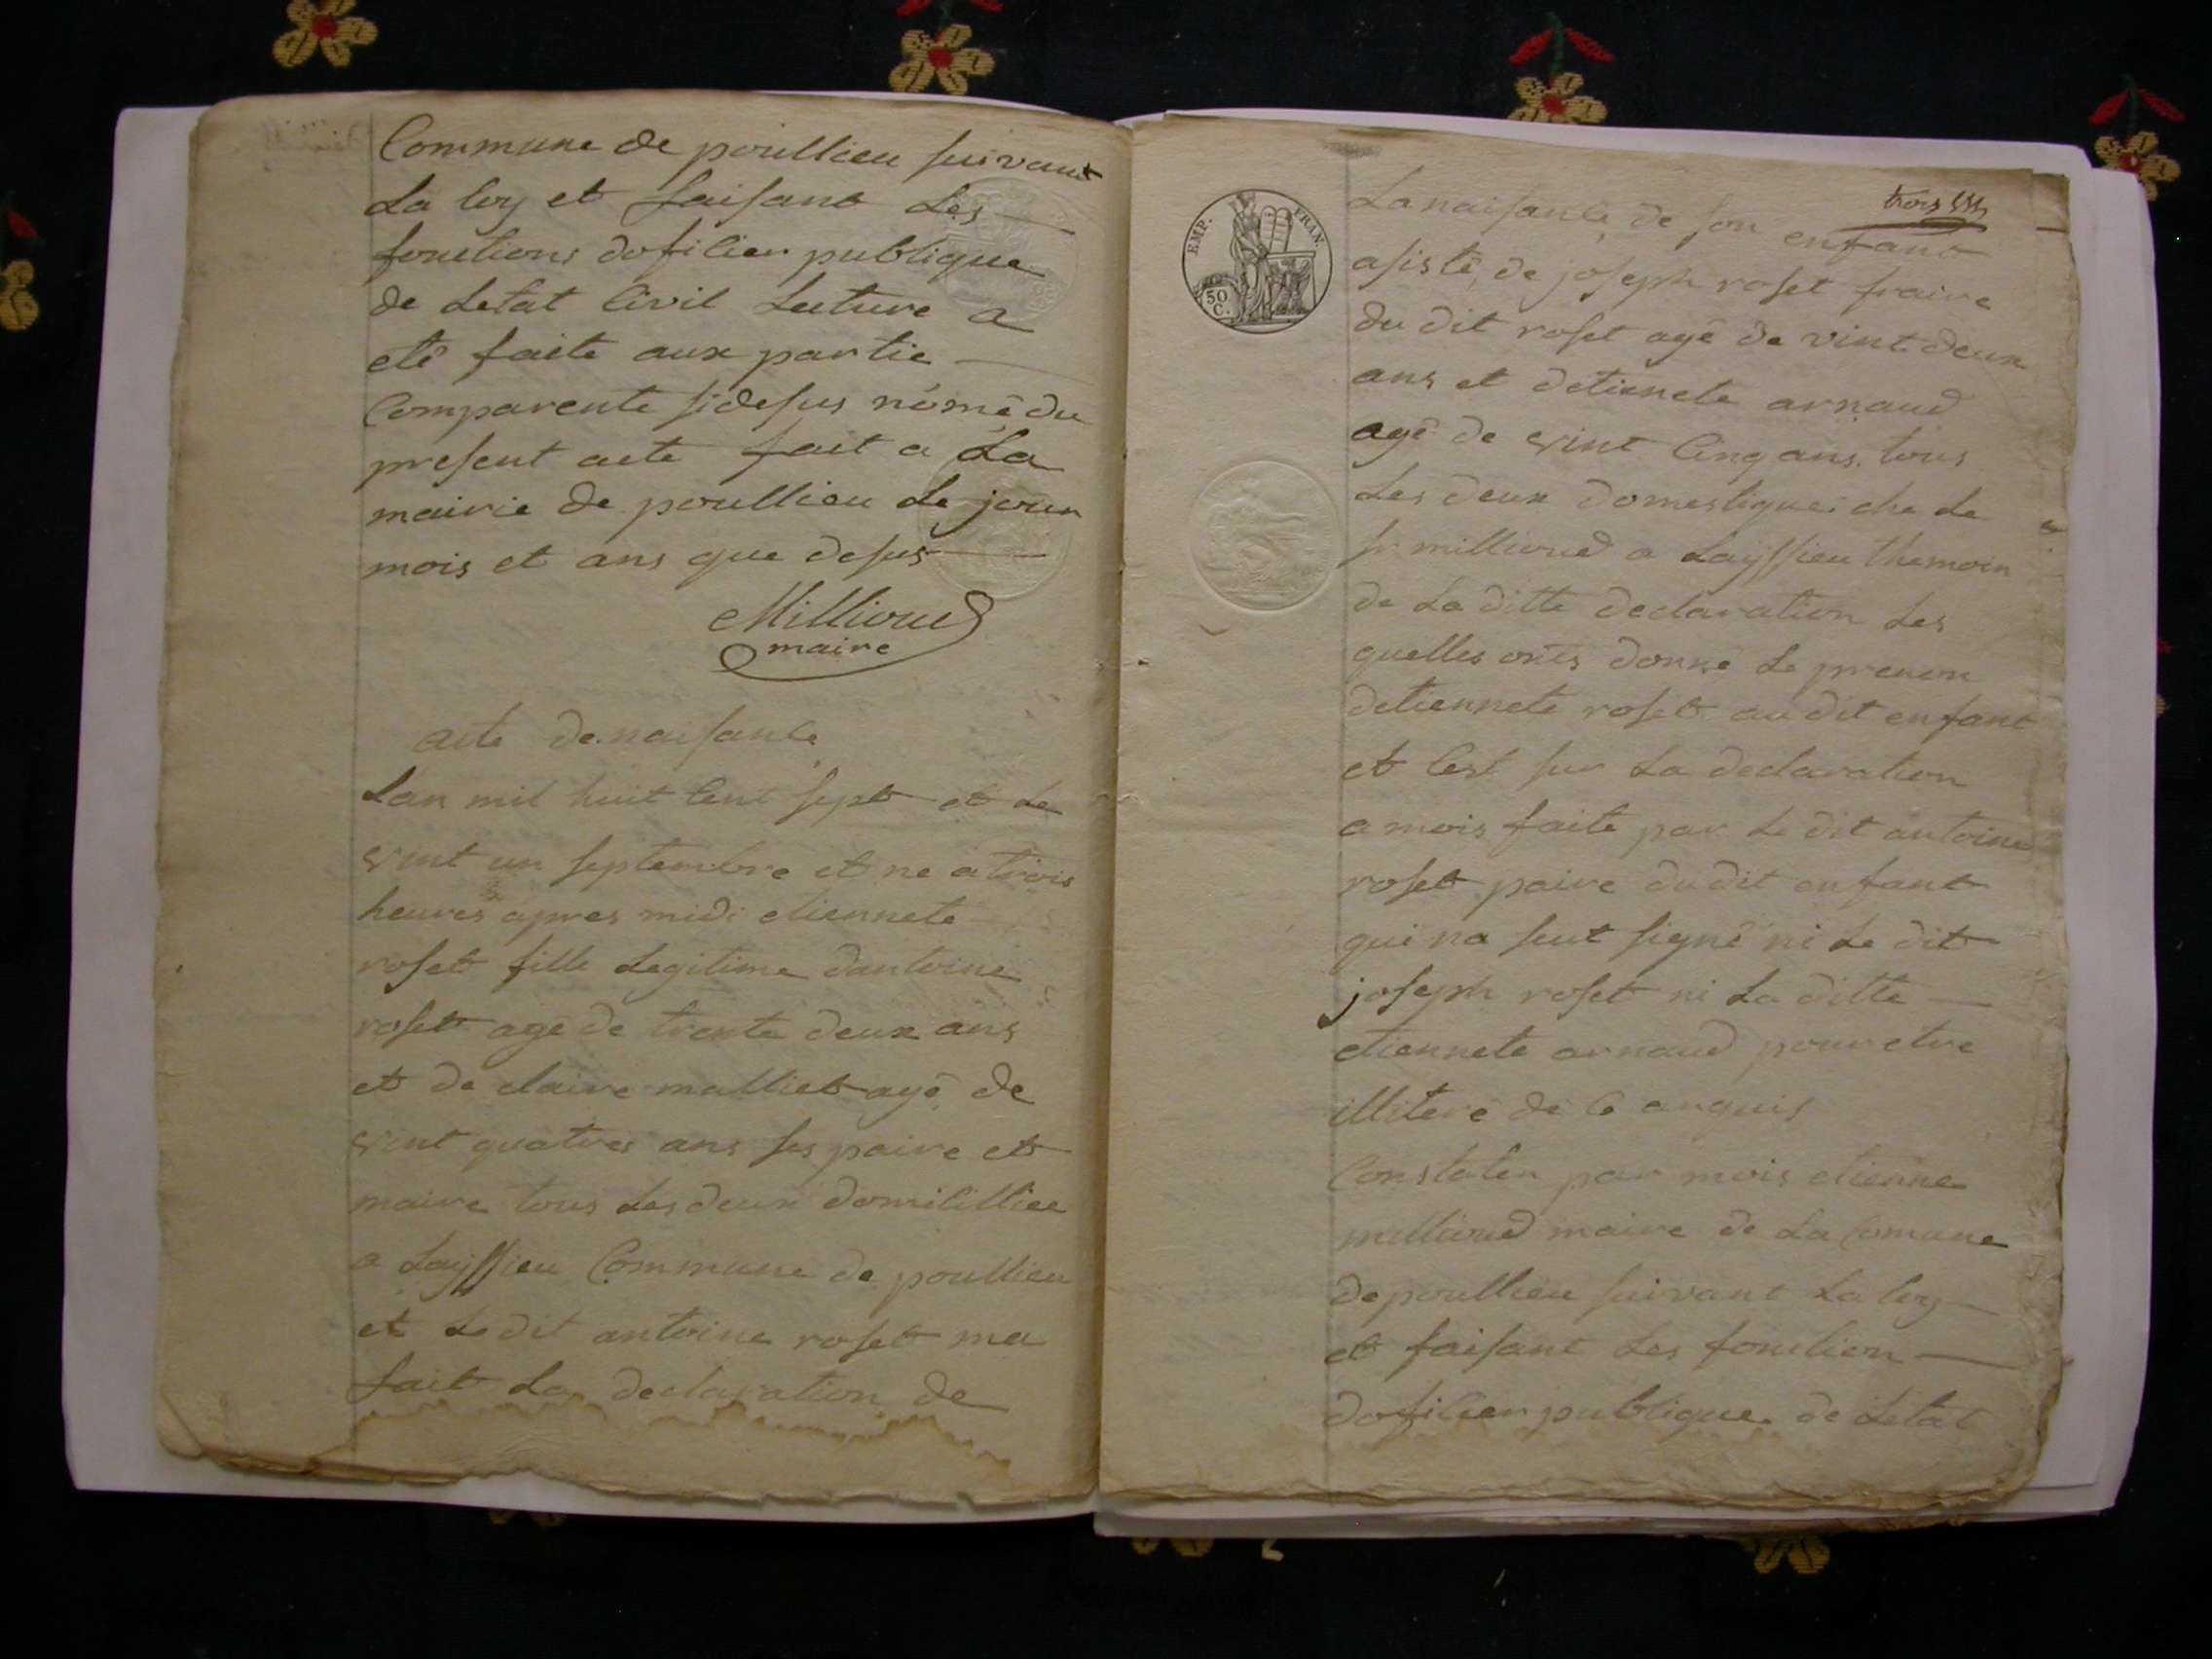 Commune de poullieu suivant
La loy et faisant Les
fonctions dofisier publique
de Letat Civil Lecture a
eté faite aux partie
Comparente sidesus nomé du
present acte fait a La
mairie de poullieu Le jour
mois et ans que desus
Millioud
maire
acte de naisance
Lan mil huit Cent sept et Le
vint un septembre et ne a trois
heures apres midi etiennete
roset fille Legitime dantoine
roset agé de trente deux ans
et de claire malliet agé de
vint quatres ans ses paire et
maire tous Les deux domicilliee
a Layssieu Commune de poullieu
et Le dit antoine roset ma
fait La declaration de
trois
EMP. FRAN.
50 C.
La naisance de son enfant
asisté de joseph roset fraire
du dit roset agé de vint deux
ans et detiennete arnaud
agé de vint Cinq ans tous
Les deux domestiques che Le
sr millioud a Layssieu themoin
de La ditte declaration Les
quelles onts donné Le prenon
detiennete roset au dit enfant
et Cest sur La declaration
a mois faite par Le dit antoine
roset paire du dit enfant
qui na seut signé ni Le dit
joseph roset ni La ditte
etiennete arnaud pour etre
illiteré de Ce anquis
Constater par mois etienne
millioud maire de La Comune
de poullieu suivant La loy
et faisant Les fonction
dofisier publique de Letat